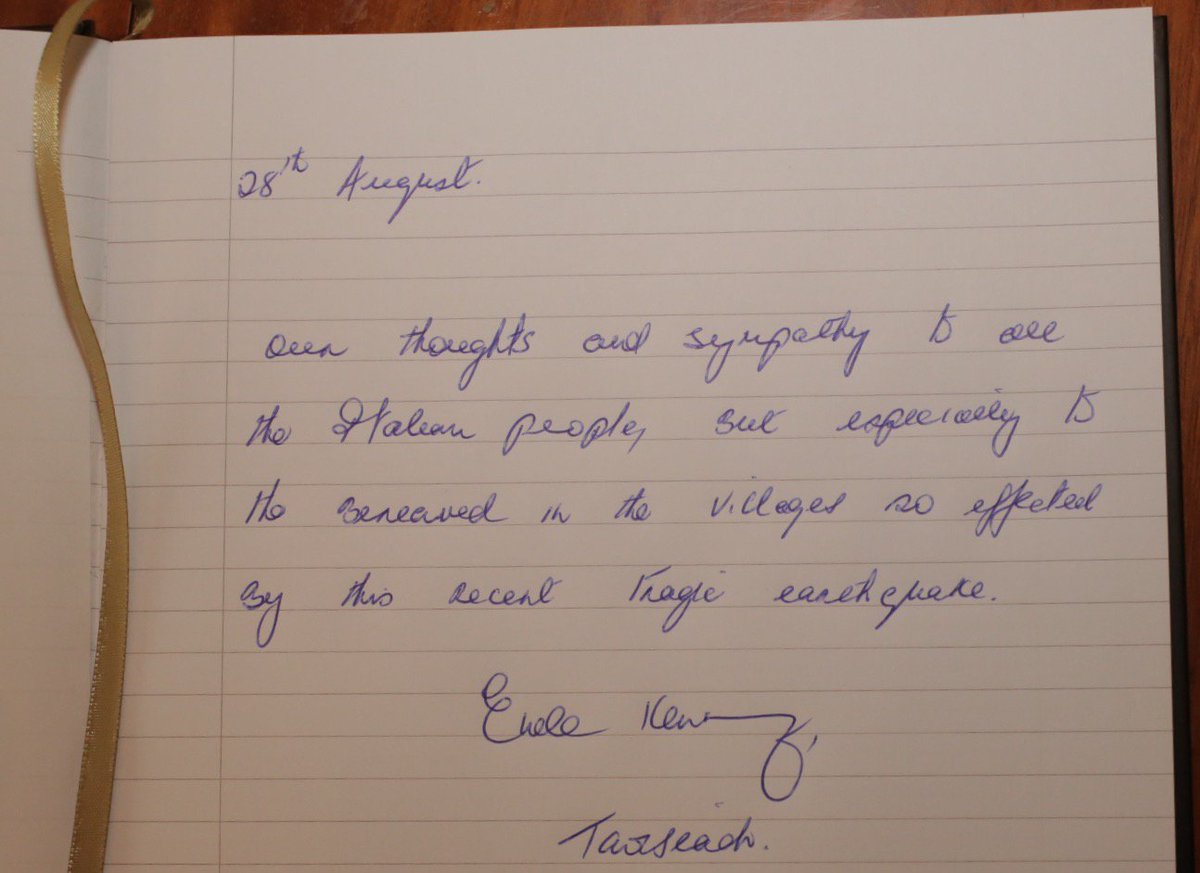 28th August.
Our thoughts and sympathy to all
the Italian people, but especially to
the bereaved in the villages so effected
by this recent tragic earthquake.
Enda Kenny,
Taoiseach.